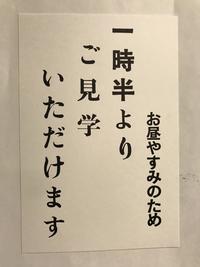 お昼やすみのため
一時半より
ご見学
いただけます